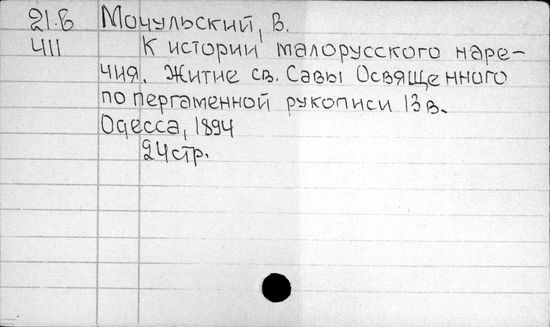 21.6 Мочульский, В.
411 К истории малорусского наре-
чия. Житие св. Савы Освященного
по пергаменной рукописи 13 в.
Одесса, 1894
24 стр.